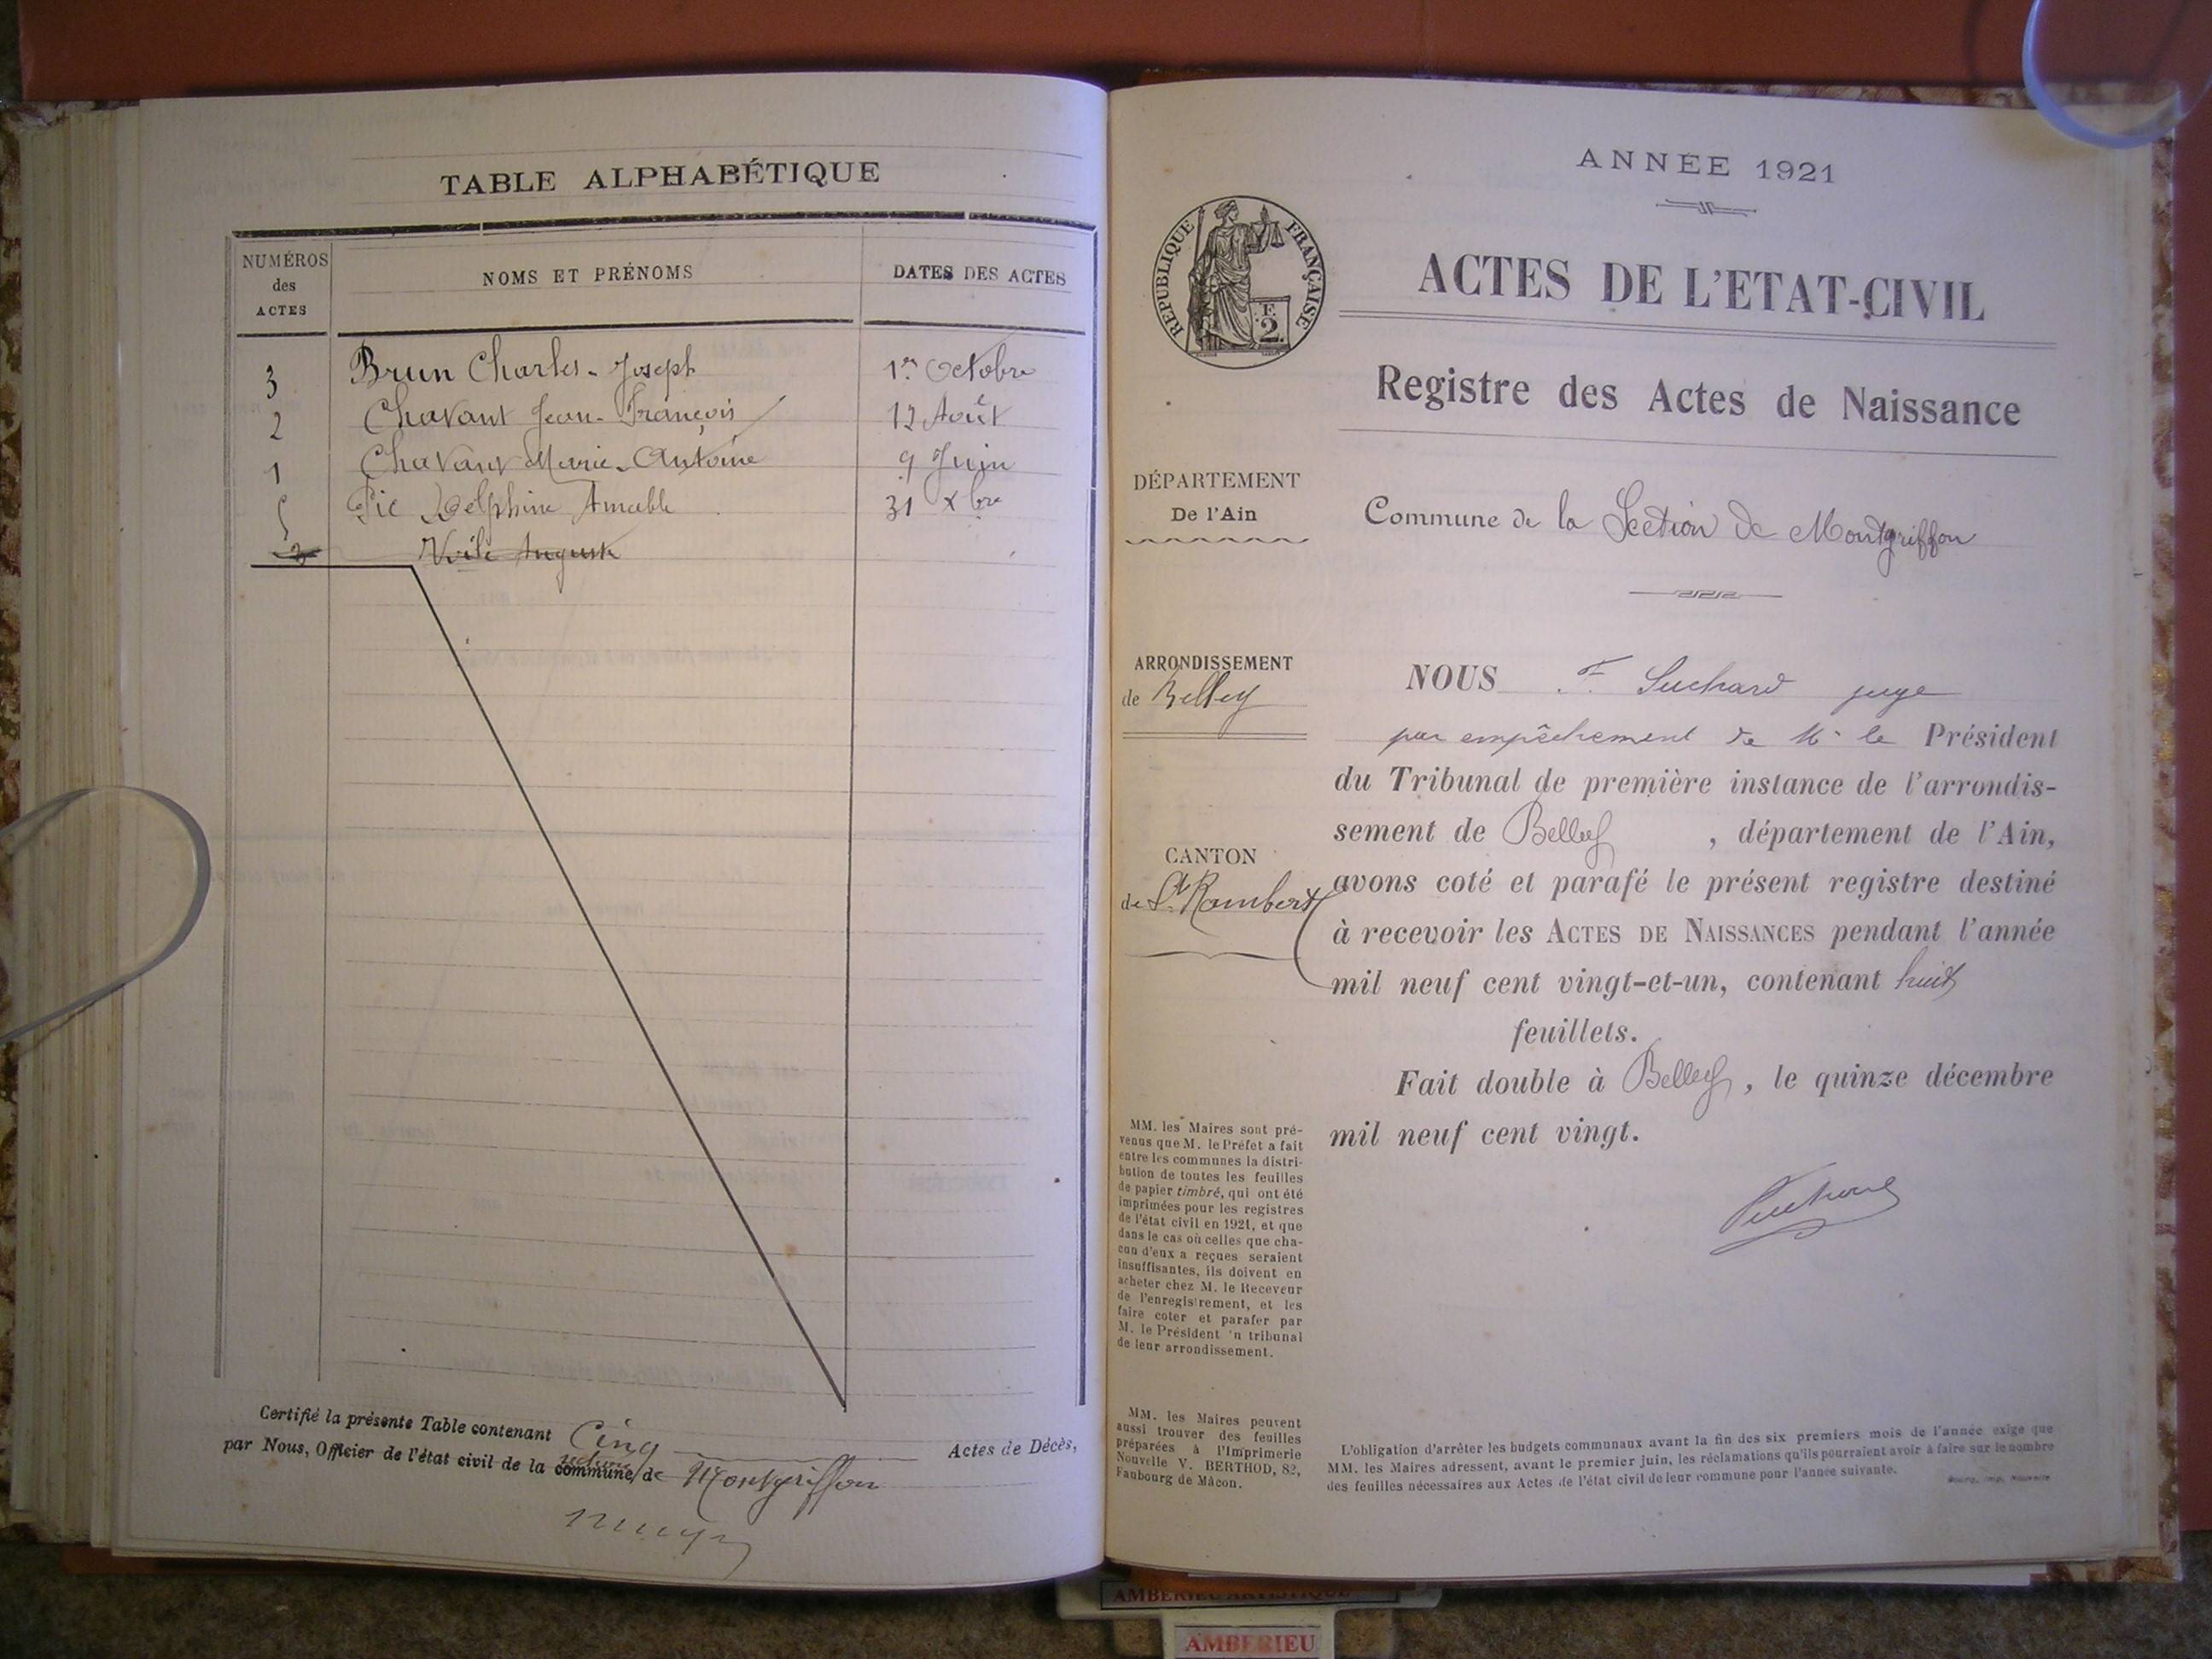 TABLE ALPHABÉTIQUE
NUMÉROS des ACTES
NOMS ET PRÉNOMS
DATES DES ACTES
3 Brun Charles-Joseph 1er Octobre
2 Chavant Jean-François 12 Août
1 Chavant Marie-Antoine 9 Juin
5 Pic Delphine Amable 31 Xbre
Auguste
Certifié la présente Table contenant Cinq Actes de Décès,
par Nous, Officier de l'état civil de la commune de Montgriffon
ANNÉE 1921
RÉPUBLIQUE FRANÇAISE
E.
2.
ACTES DE L'ETAT-CIVIL
Registre des Actes de Naissance
DÉPARTEMENT
De l'Ain
Commune de la Section de Montgriffon
ARRONDISSEMENT
de Belley
CANTON
de St Rambert
NOUS F. Suchard juge
par empêchement de Mr le Président
du Tribunal de première instance de l'arrondis-
sement de Belley, département de l'Ain,
avons coté et parafé le présent registre destiné
à recevoir les ACTES DE NAISSANCES pendant l'année
mil neuf cent vingt-et-un, contenant huit
feuillets.
Fait double à Belley, le quinze décembre
mil neuf cent vingt.
MM. les Maires sont pré-
venus que M. le Préfet a fait
entre les communes la distri-
bution de toutes les feuilles
de papier timbré, qui ont été
imprimées pour les registres
de l'état civil en 1921, et que
dans le cas où celles que cha-
cun d'eux a reçues seraient
insuffisantes, ils doivent en
acheter chez M. le Receveur
de l'enregistrement, et les
faire coter et parafer par
M. le Président 'u tribunal
de leur arrondissement.
MM. les Maires peuvent
aussi trouver des feuilles
préparées à l'Imprimerie
Nouvelle V. BERTHOD, 82,
Faubourg de Mâcon.
L'obligation d'arrêter les budgets communaux avant la fin des six premiers mois de l'année exige que
MM. les Maires adressent, avant le premier juin, les réclamations qu'ils pourraient avoir à faire sur le nombre
des feuilles nécessaires aux Actes de l'état civil de leur commune pour l'année suivante.
Bourg, Imp. Nouvelle
AMBERIEU ARTISTIQUE
AMBERIEU